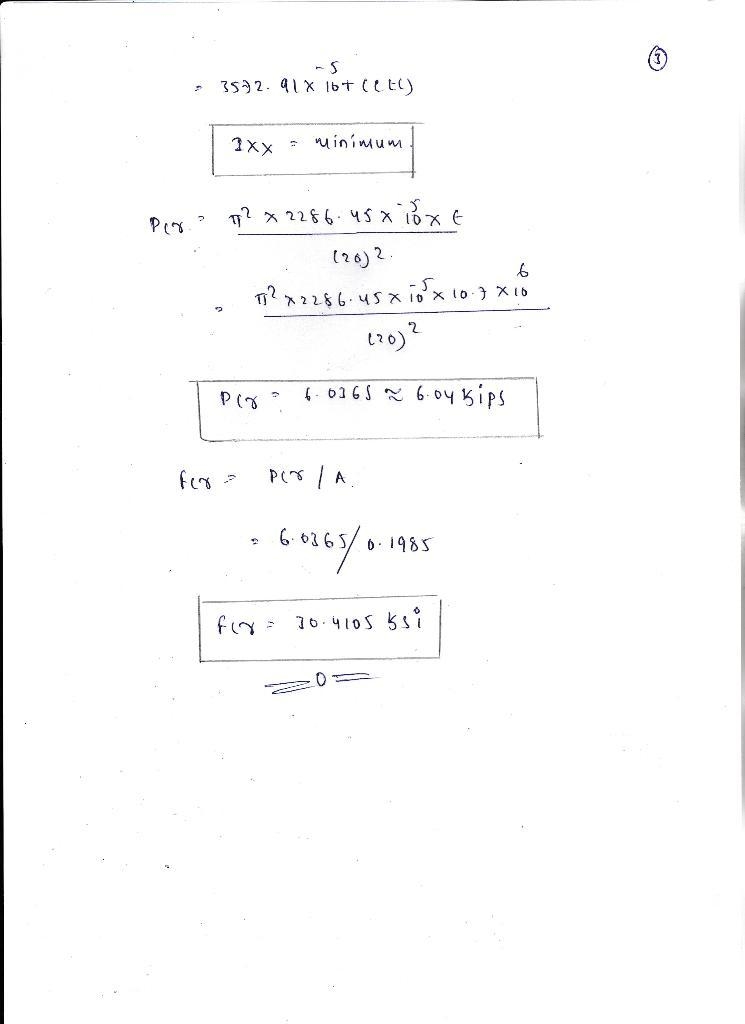 ③
= 3572.91 x 10⁻⁵ + (etc)
Ixx = minimum.
Pcr = π² x 2286.45 x 10⁻⁵ x E
(20)²
= π² x 2286.45 x 10⁻⁵ x 10.7 x 10⁶
(20)²
Pcr = 6.0365 ≈ 6.04 Kips
fcr = Pcr / A.
= 6.0365 / 0.1985
fcr = 30.4105 Ksi
=0=